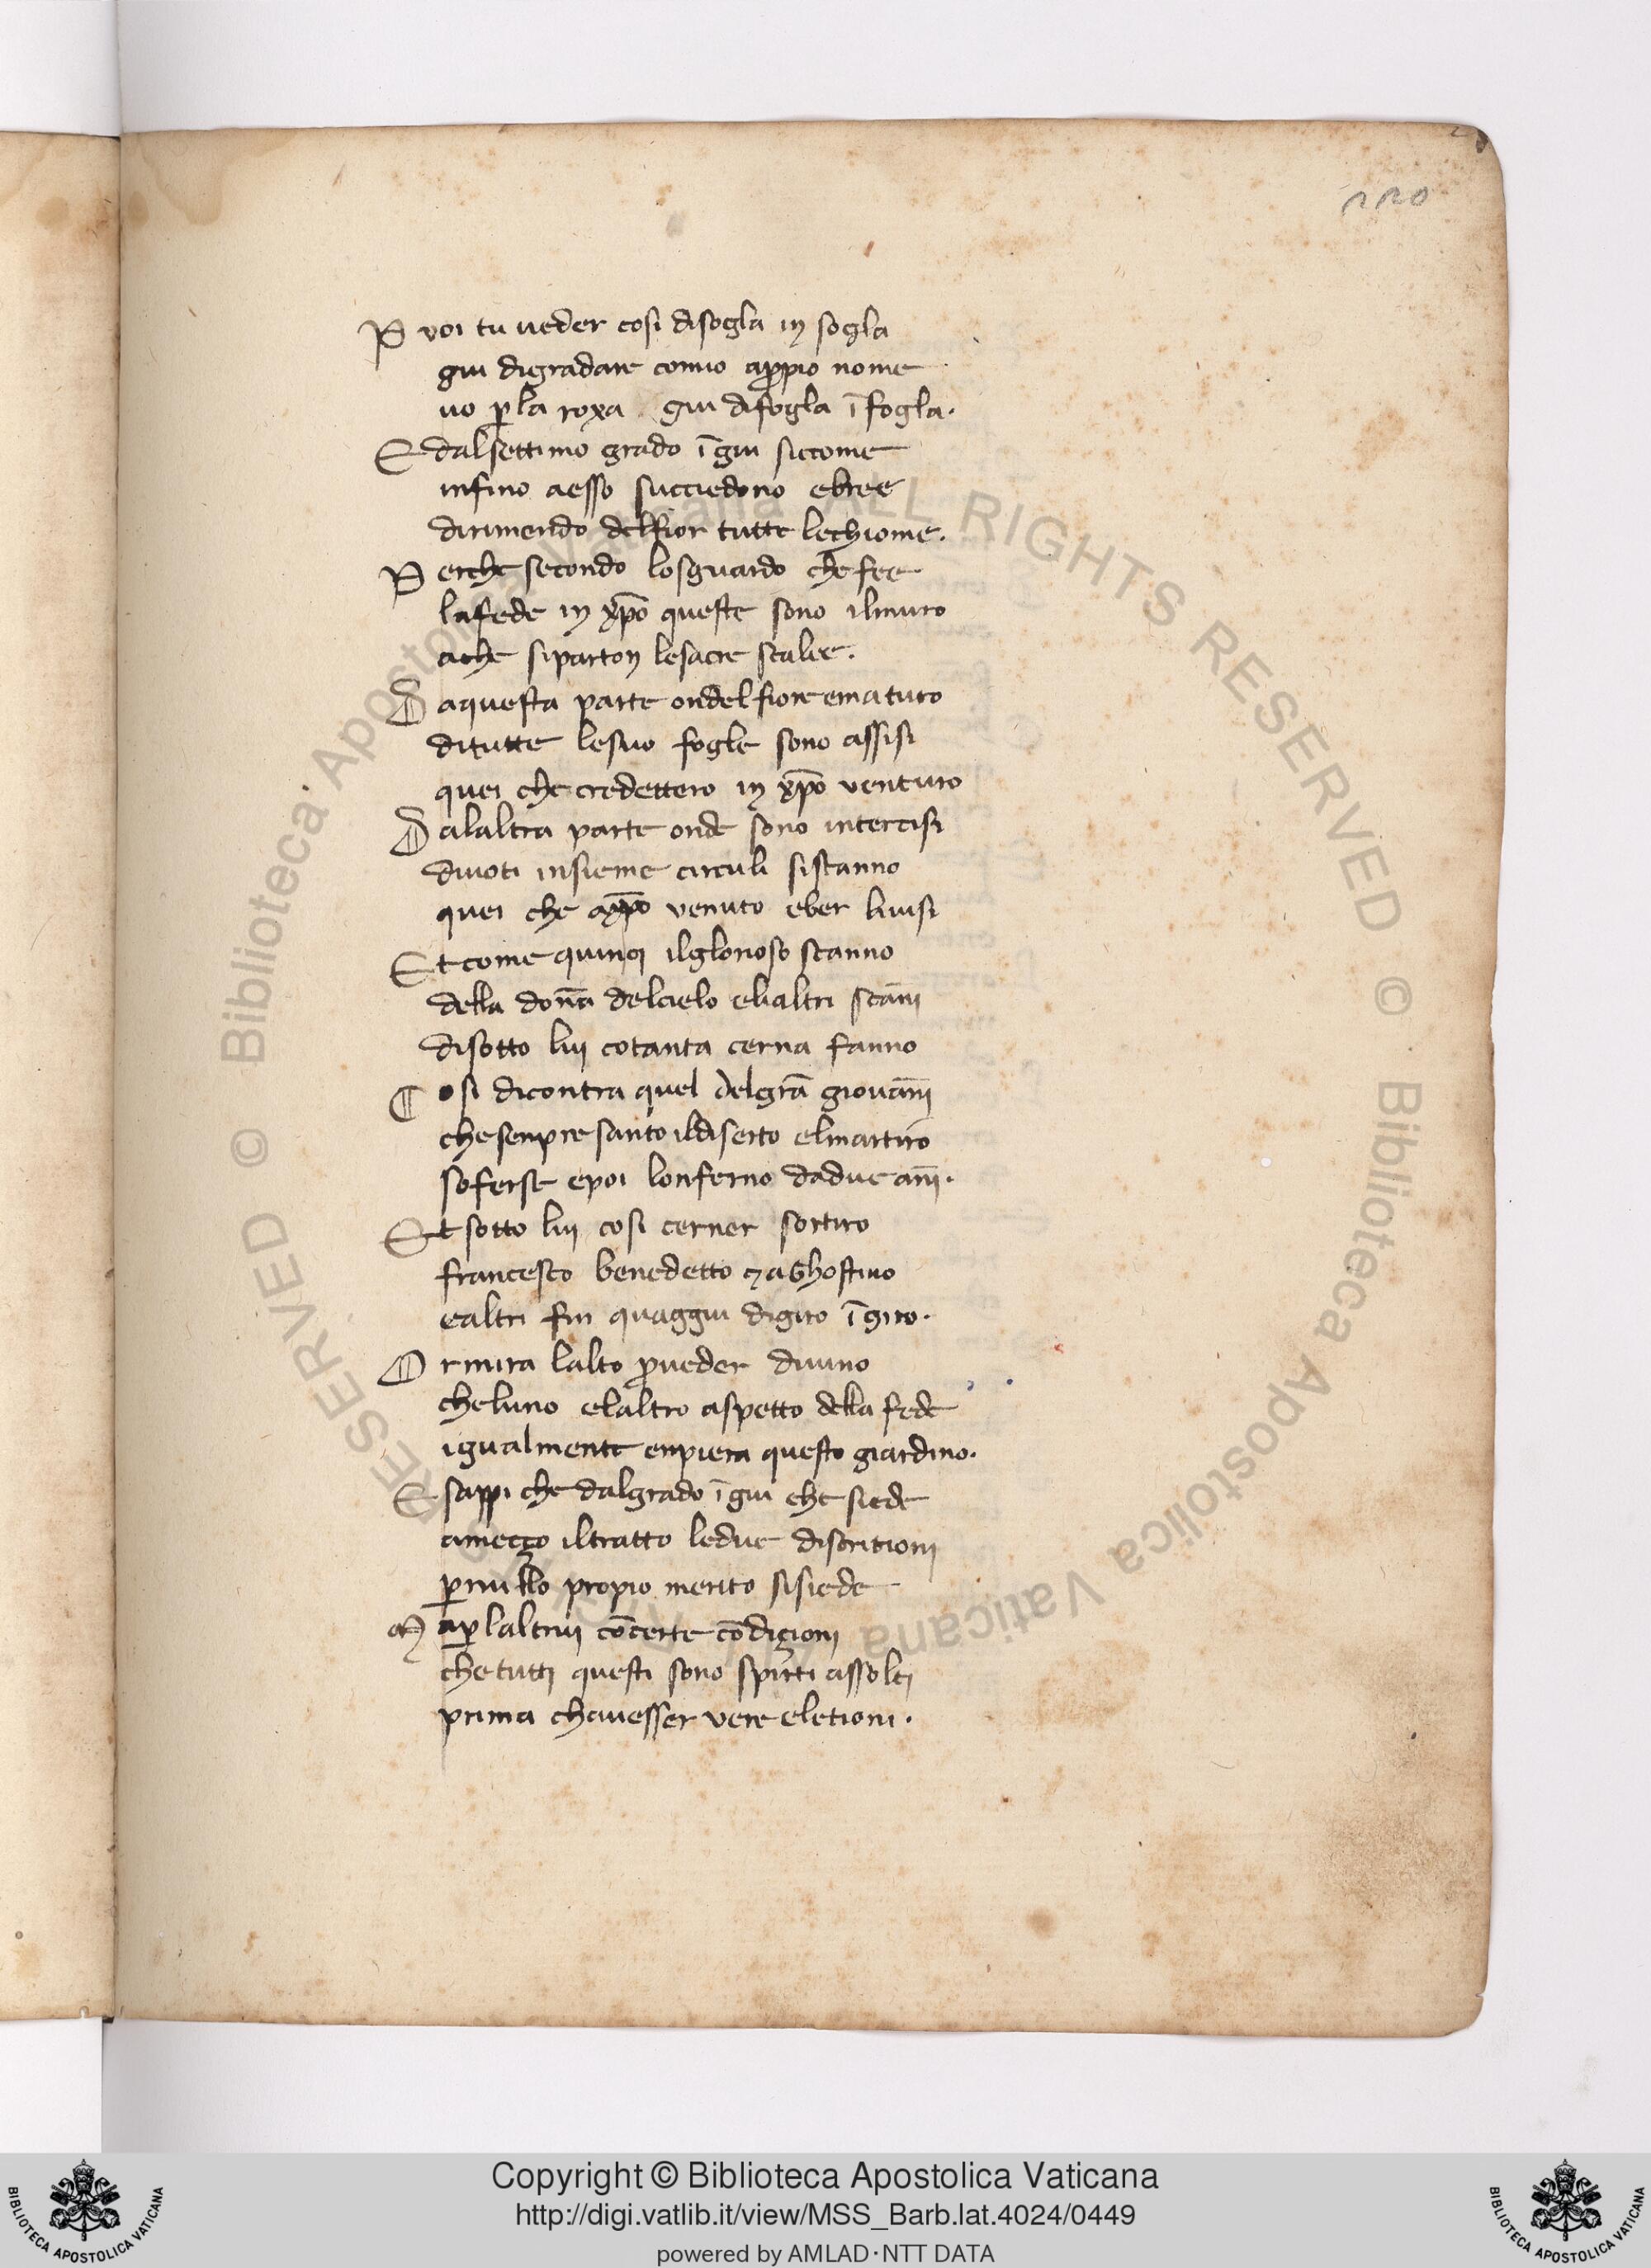 220
P voi tu ueder cosi disogla in sogla
giu digradare comio appio nome
uo ꝑ la roxa giu difogla ī fogla.
E dalsettimo grado ī giu siccome
infino aesso succiedono ebree
dirimendo delfior tutte lechiome.
P erche secondo losguardo che fee
lafede in xp̄o queste sono ilmuro
ache siparton lesacre scalee.
D aquesta parte ondelfiore ematuro
ditutte lesuo fogle sono assisi
quei che credettero in xp̄o venturo
D alaltra parte onde sono intercisi
divoti insieme circuli sistanno
quei che axp̄o venuto eber liuisi
E t come quinci ilglorioso scanno
della don̄a delcielo elialtri scān̄i
disotto lui cotanta cerna fanno
C osi dicontra quel delgrā giouān̄i
chesenpre santo ildiserto elmartiro
soferse epoi lonferno dadue an̄i.
E t sotto lui cosi cerner sortiro
francesco benedetto ⁊ aghostino
ealtri fin quaggiu digiro ī giro.
O rmira lalto ꝓueder diuino
cheluno elaltro aspetto della fede
igualmente enpiera questo giardino.
E sappi che dalgrado ī giu che siede
amezzo iltratto ledue discritioni
ꝑ nullo propio merito sisiede
M aꝑ laltrui cōcerte cōdizioni
chetutti questi sono spirti assolti
prima chauesser vere eletioni.
Copyright © Biblioteca Apostolica Vaticana
http://digi.vatlib.it/view/MSS_Barb.lat.4024/0449
powered by AMLAD·NTT DATA
BIBLIOTECA APOSTOLICA VATICANA
BIBLIOTECA APOSTOLICA VATICANA